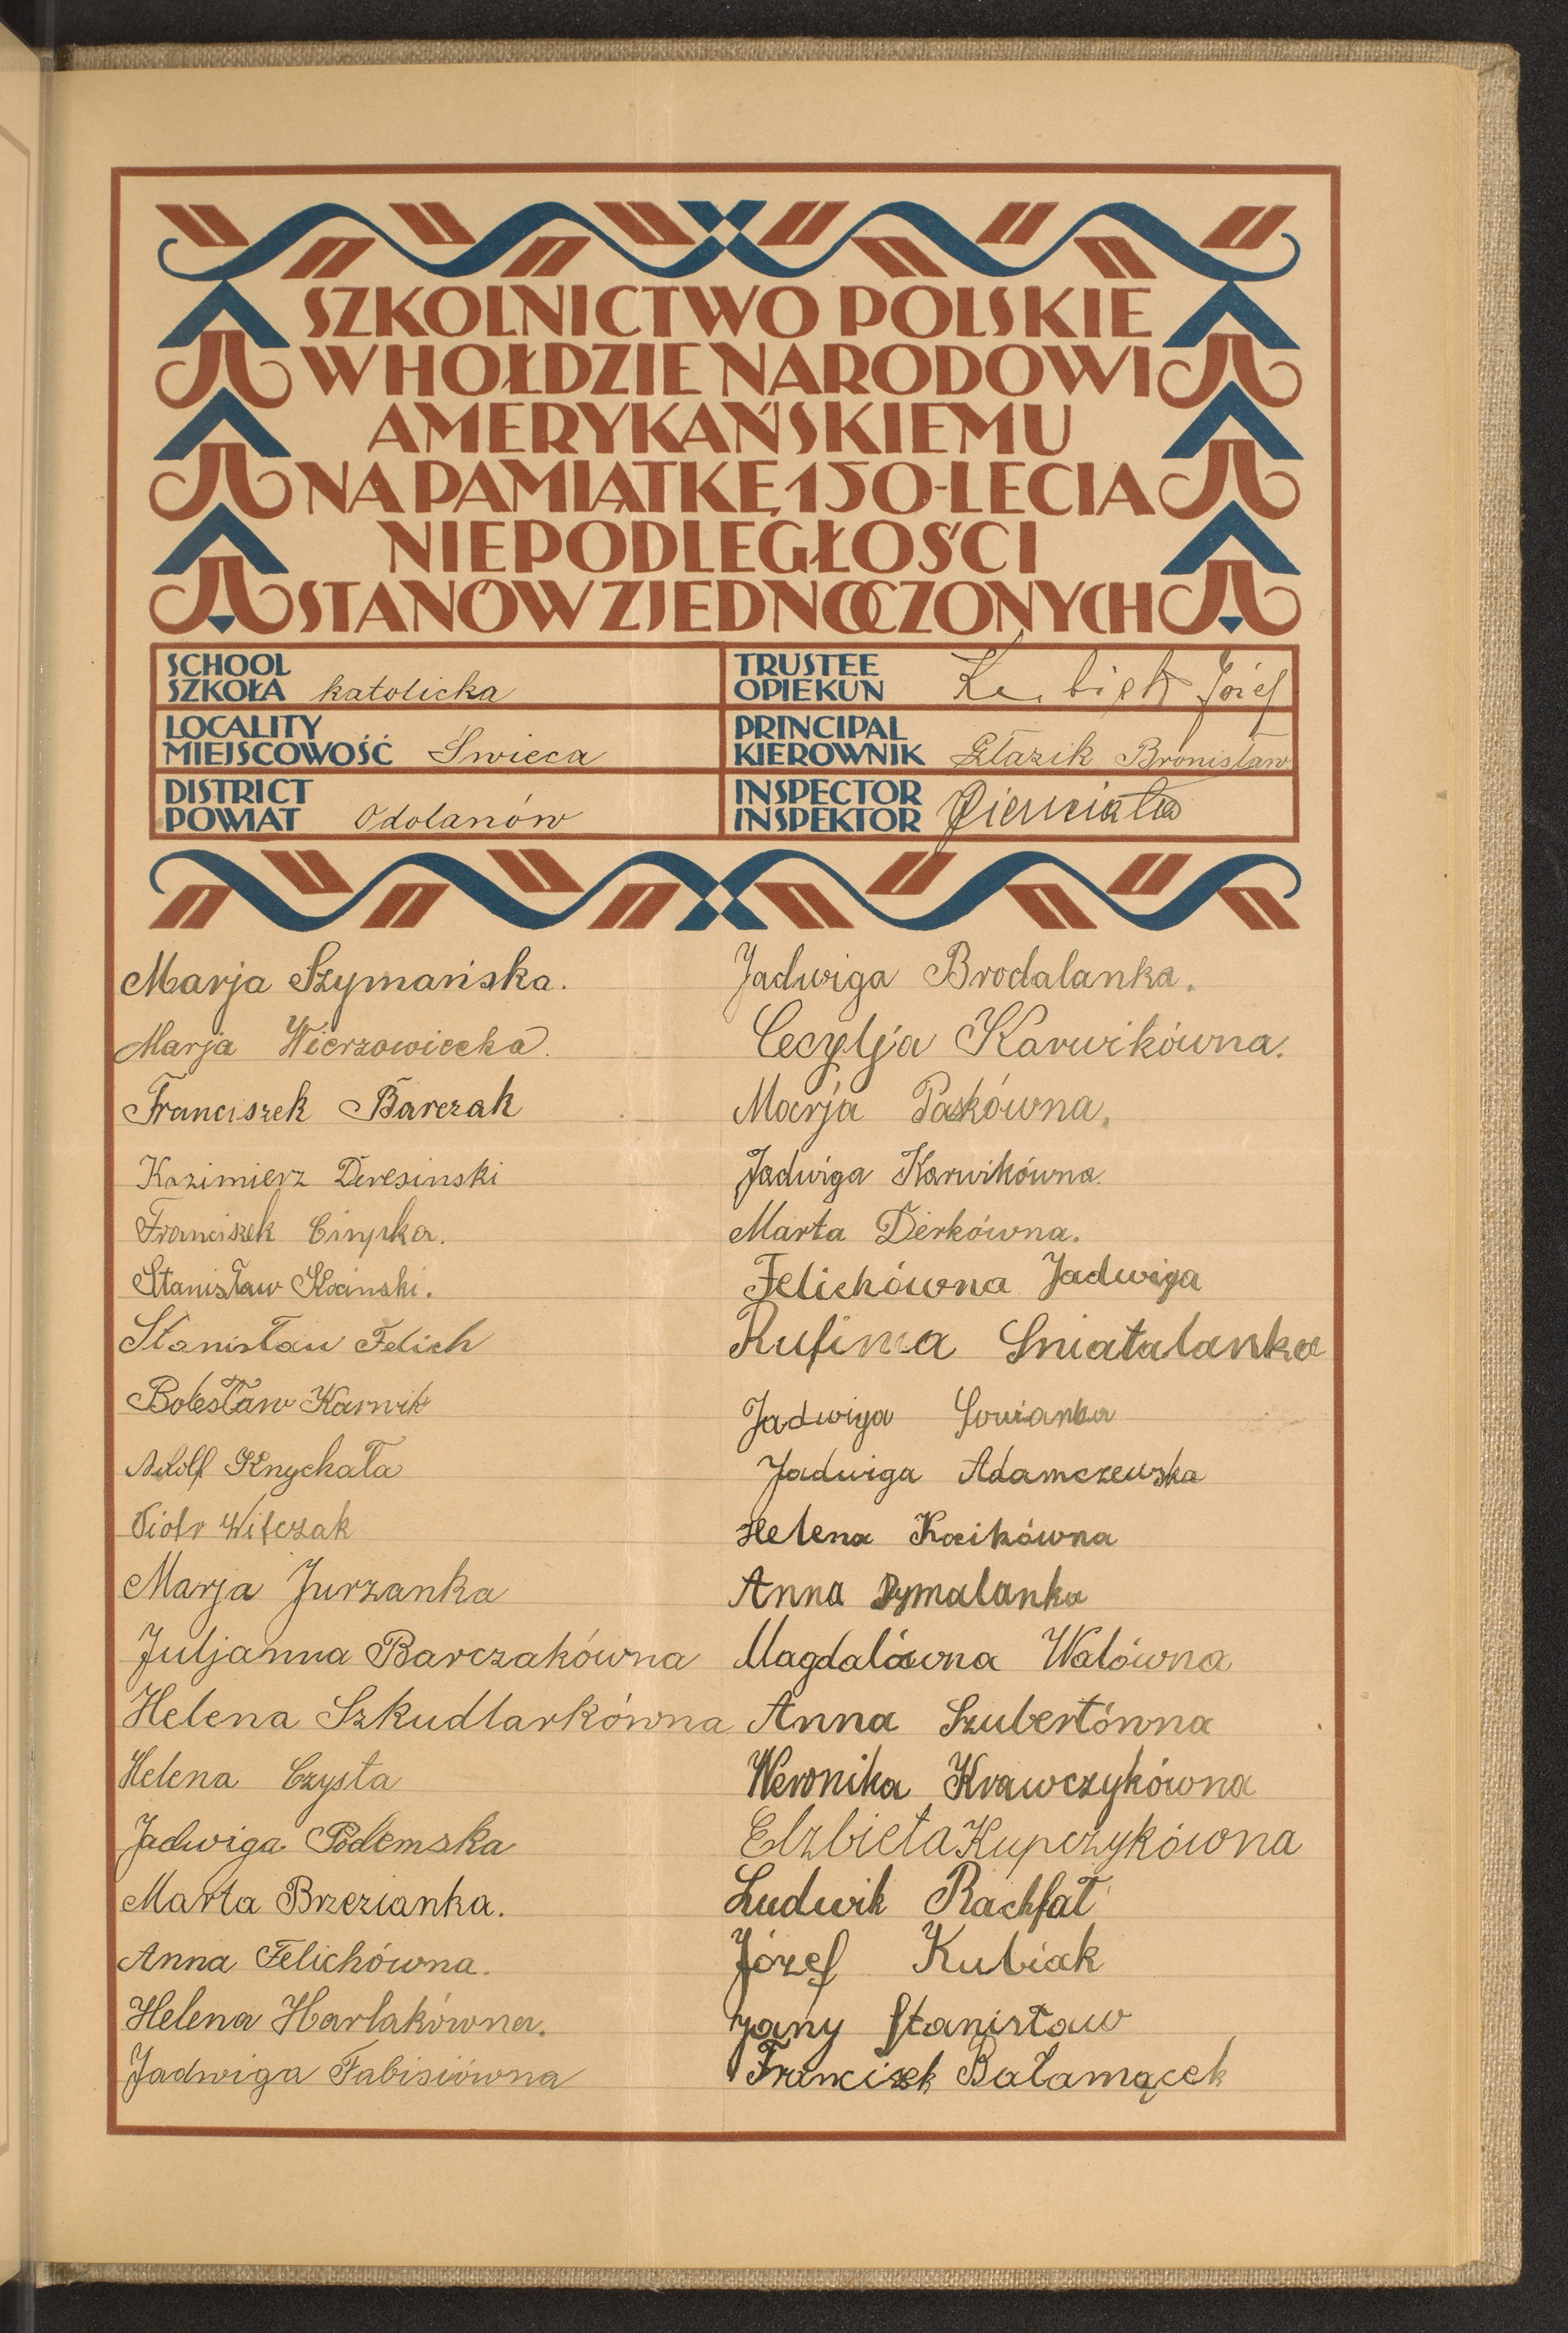 SZKOLNICTWO POLSKIE
W HOŁDZIE NARODOWI
AMERYKAŃSKIEMU
NA PAMIĄTKĘ 150-LECIA
NIEPODLEGŁOŚCI
STANÓW ZJEDNOCZONYCH
SCHOOL
SZKOŁA katolicka
LOCALITY
MIEJSCOWOŚĆ Świeca
DISTRICT
POWIAT Odolanów
TRUSTEE
OPIEKUN Józef
PRINCIPAL
KIEROWNIK Bronisław
INSPECTOR
INSPEKTOR
Marja Szymańska.
Marja Wierzowiecka.
Franciszek Barczak
Kazimierz Deresinski
Franciszek
Stanisław Kocinski.
Stanisław Felich
Bolesław Karwik
Adolf Knychała
Piotr Witczak
Marja Jurzanka
Juljanna Barczakówna
Helena Szkudlarkówna
Helena Czysta
Jadwiga Podemska
Marta Brzezianka.
Anna Felichówna.
Helena Harlakówna.
Jadwiga Fabisiówna
Jadwiga Brodalanka.
Cecylja Karwikówna.
Marja Paskówna.
Jadwiga Karwikówna.
Marta Derkówna.
Felichówna Jadwiga
Rufina Sniatalanka
Jadwiga
Jadwiga Adamczewska
Helena Kocikówna
Anna Dymalanka
Magdalówna Walówna
Anna Szubertówna
Weronika Krawczykówna
Elzbieta Kupczykówna
Ludwik Rachfał
Józef Kubiak
Jany Stanisław
Franciszek Bałamącek